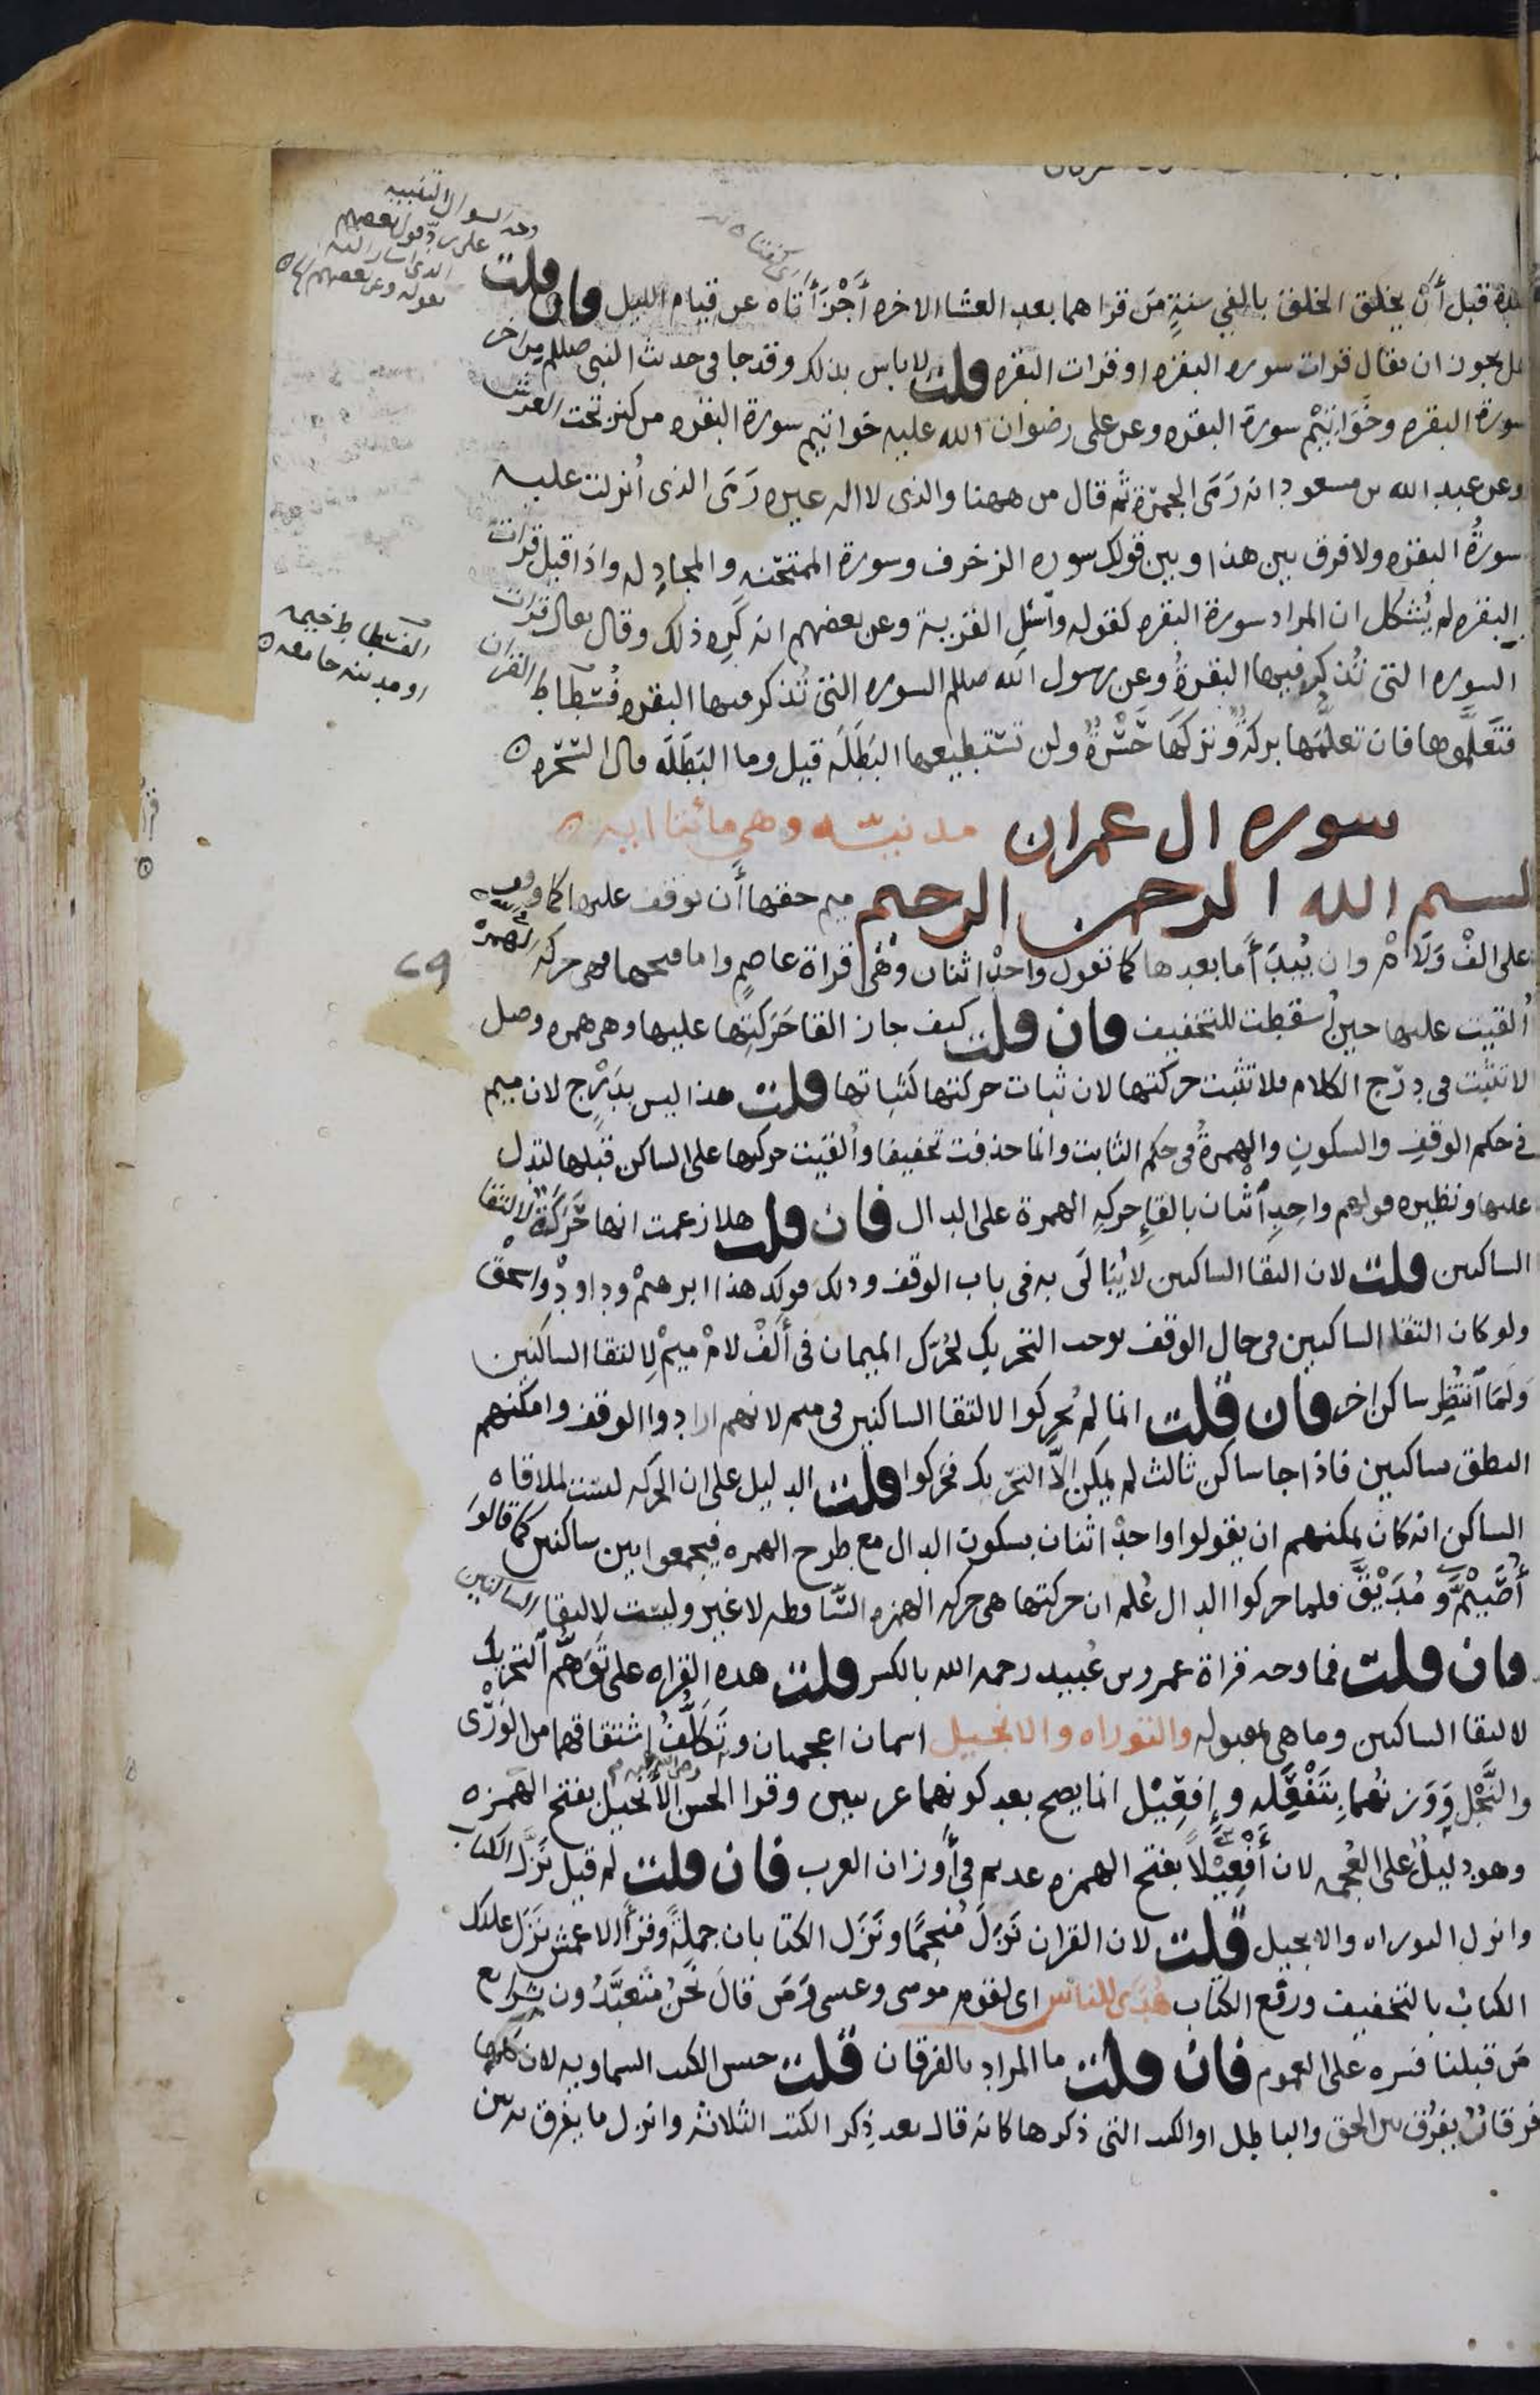 بيده قبل أن يخلق الخلق بالفي سنةٍ مَن قراهما بعد العشا الاخره أَجْزَأَتاه عن قيام الليل فان قلت
هل يجوز ان يقال قرات سوره البقره او قرات البقره قلت لا باس بذلك وقد جا فى حديث النبى صللم من اخر
سورة البقره وخَوَاتيْم سورة البقره وعن على رضوان الله عليه خواتيم سورة البقره من كنز تحت العرش
وعن عبد الله بن مسعود انه رَمَى الجمرة ثم قال من ههنا والذى لا اله غيره رَمَى الذى أنزلت عليه
سورةُ البقره ولا فرق بين هذا وبين قولك سوره الزخرف وسورة الممتحنه والمجادله واذا قيل قرات
البقره لم يُشكل ان المراد سورة البقره كقوله وأسئل القرية وعن بعضهم انه كَرِه ذلك وقال يقال قرات
السوره التى تُذكر فيها البقرةُ وعن رسول الله صللم السوره التى تُذكر فيها البقره فُسْطاط القران
فتَعلَّموها فان تعلُّمها بركةٌ وتركَها حَسْرةٌ ولن تستطيعها البَطَلَة قيل وما البَطَلَه قال السَّحَره
سوره ال عمران مدنيّه وهي مائتا ايه
بسم الله الرحمن الرحيم ميم حقها أن يوقف عليها كما وقف
على الفْ ولامْ وان يُبدَأ ما بعدها كما تقول واحدْ اثنان وهْىَ قراة عاصمٍ واما فتحها فهى حركه الهمزه
أُلقيت عليها حين أسقطت للتخفيف فان قلت كيف جاز القا حَرَكتِها عليها وهى همزه وصل
لا تثبت فى دَرْج الكلام فلا تثبت حركتها لان ثبات حركتها كثباتها قلت هذا ليس بدَرْجٍ لان ميم
فى حكم الوقف والسكون والهمزةُ فى حكم الثابت وانما حذفت تخفيفا وأُلقيت حركتها على الساكن قبلها لتدل
عليها ونظيره قولهم واحِدِ اثنان بالقاءِ حركهِ الهمزة على الدال فان قلت هلا زعمت انها حَرَكَةٌ لالتقا
الساكنين قلت لان التقا الساكنين لا يُبَالَى به فى باب الوقف وذلك قولك هذا ابرهيْم وداودْ واسحقْ
ولو كان التقا الساكنين فى حال الوقف يوجب التحريك لحُرّك الميمان فى ألفْ لامْ ميمْ لالتقا الساكنين
وَلَمَا اَنتُظِر ساكن اخر فان قلت انما لم يُحركوا لالتقا الساكنين فى ميم لانهم ارادوا الوقف وامكنهم
النطق بساكنين فاذا جا ساكن ثالث لم يمكن إلاّ التحريك فحَركوا قلت الدليل على ان الحركه ليست لملاقاه
الساكن انه كان يمكنهم ان يقولوا واحدْ اثنان بسكون الدال مع طرح الهمزه فيجمعوا بين ساكنين كما قالوا
أُصَيْمٌّ و مُدَيْقٌّ فلما حركوا الدال عُلم ان حركتها هى حركه الهمزه السّاقطه لا غير وليست لالتقا الساكنين
فان قلت فما وجه قراة عمرو بن عُبيد رحمه الله بالكسر قلت هذه القراه على تَوَهُّم التحريك
لالتقا الساكنين وما هى بمقبوله والتوراه والانجيل اسمان اعجميان وتَكَلُّفُ اشتقاقهما من الوَرْى
والنَّجْلِ وَوَزنُهما بتَفْعَلَه وإِفعِيْل انما يصح بعد كونهما عربيين وقرا الحسن الأَنجيل بفتح الهمزه
وهو دليلٌ على العُجمه لان أَفْعِيْلاً بفتح الهمزه عديم فى أوزان العرب فان قلت لم قيل نَزَّل الكتاب
وانزل التوراه والانجيل قلت لان القران نَزَلَ مُنجمًا ونَزَل الكتابان جملةً وقرأ الاعمش نَزَل عليك
الكتابُ بالتخفيف ورفع الكتاب هُدَى للناس اى لقوم موسى وعيسى ومَن قالَ نَحْنُ مُتَعَبَّدُون بشرايع
مَن قبلنا فسره على العموم فان قلت ما المراد بالفرقان قلت جنس الكتب السماويه لان كلها
فرقانٌ يفرُق بين الحق والباطل او الكتب التى ذكرها كانه قال بعد ذِكر الكتب الثلاثه وانزل ما يفرق به بين
وجه السوال التنبيه
على ردّ قول بعضهم
الذى اشار اليه
بقوله وعن بعضهم انه
الفسطاط خيمه
او مدينه جامعه
٢٩